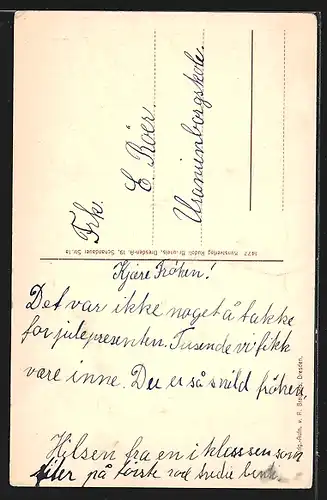 Frk.
E. Röer.
Uranienborgskole.
1477 Kunstverlag Rudolf Dresden-A. 19, Schandauer Str.
Kjære Frøken!
Det var ikke noget å takke
for julepresenten. Tusende vi fikk
være inne. Du er så snild frøken,
Hilsen fra en i klassen som
sitter på første rad
Dresden.